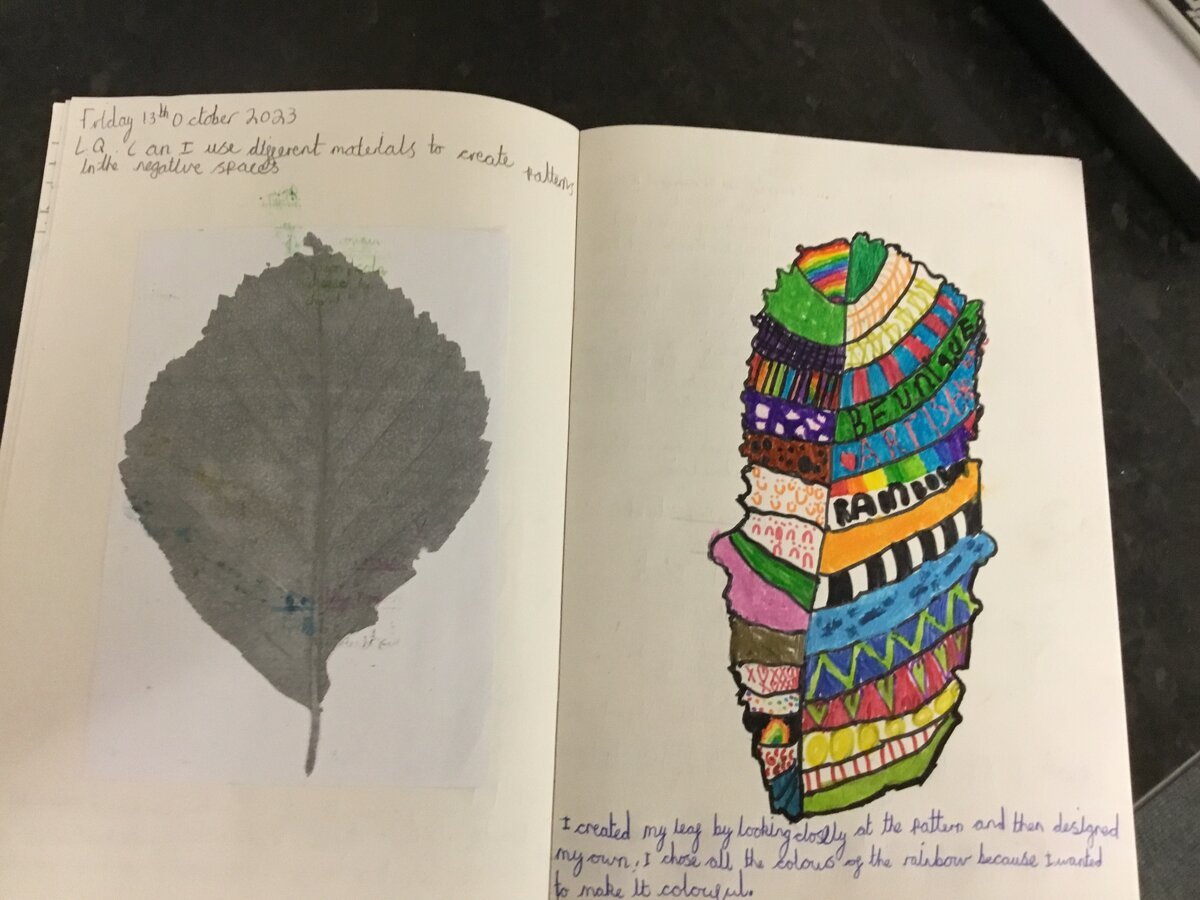 Friday 13th October 2023
L.Q. Can I use different materials to create patterns
in the negative spaces
BE UNIQUE
RAINBOW
I created my leaf by looking closely at the pattern and then designed
my own. I chose all the colous of the rainbow because I wanted
to make it colourful.